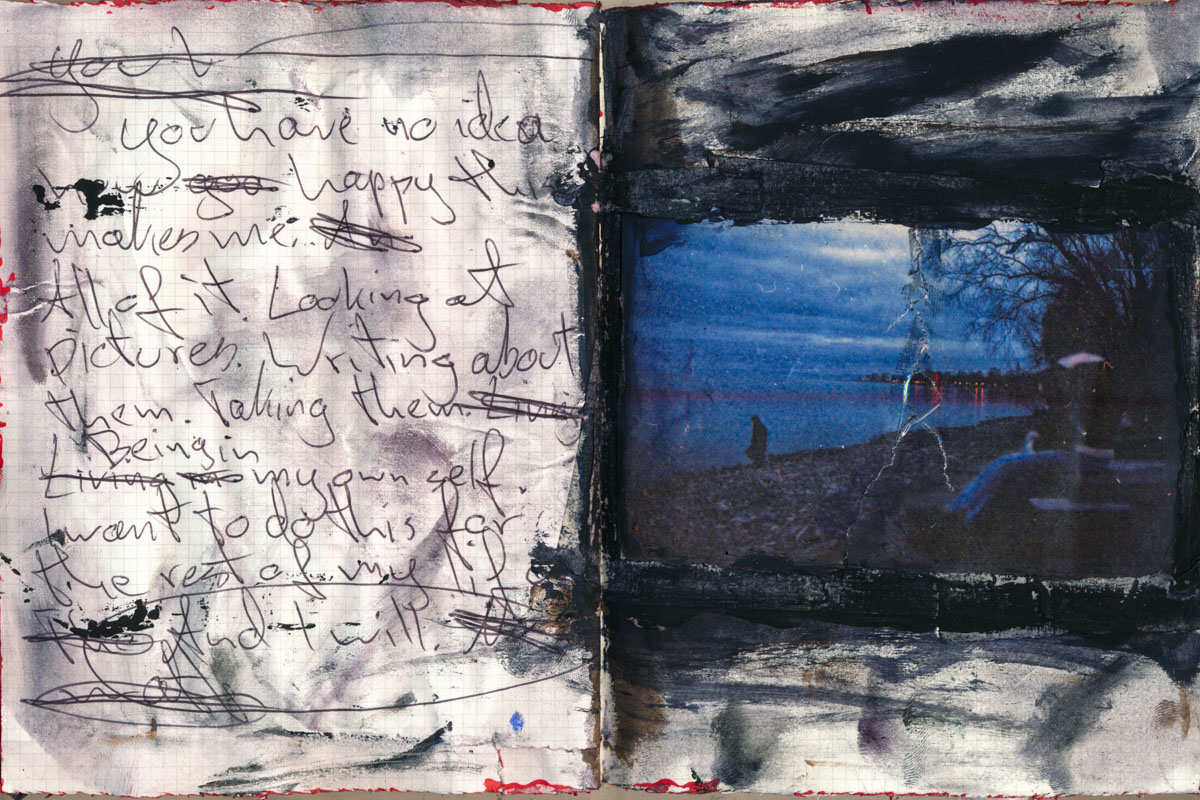 you have no idea
how happy this
makes me.
All of it. Looking at
pictures. Writing about
them. Taking them. Living
Being in
Living my own self.
I want to do this for
the rest of my life
They And I will.